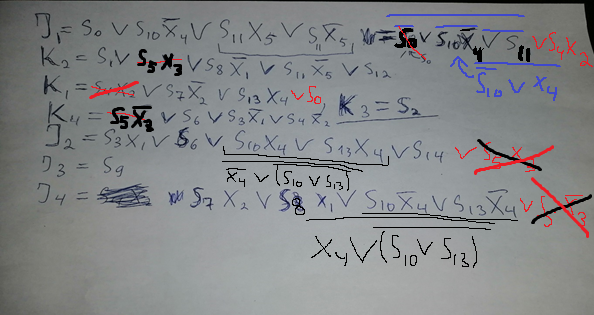 J₁ = S₀ ∨ S₁₀X̅₄ ∨ S₁₁X₅ ∨ S₁₁X̅₅ = S₀ ∨ S₁₀X̅₄ ∨ S₁₁ ∨ S₄X₂
K₂ = S₁ ∨ S₅X₃ ∨ S₈X̅₁ ∨ S₁₁X̅₅ ∨ S₁₂ S̅₁₀ ∨ X₄
K₁ = S₄X₂ ∨ S₇X̅₂ ∨ S₁₃X₄ ∨ S₀, K₃ = S₂
K₄ = S₅X̅₃ ∨ S₆ ∨ S₃X̅₁ ∨ S₄X̅₂
J₂ = S₃X₁ ∨ S₆ ∨ S₁₀X₄ ∨ S₁₃X₄ ∨ S₁₄ ∨ S₅X₃
J₃ = S₉ X̅₄ ∨ (S₁₀ ∨ S₁₃)
J₄ = S₇X₂ ∨ S₈X₁ ∨ S₁₀X̅₄ ∨ S₁₃X̅₄ ∨ S₅X̅₃
X₄ ∨ (S₁₀ ∨ S₁₃)